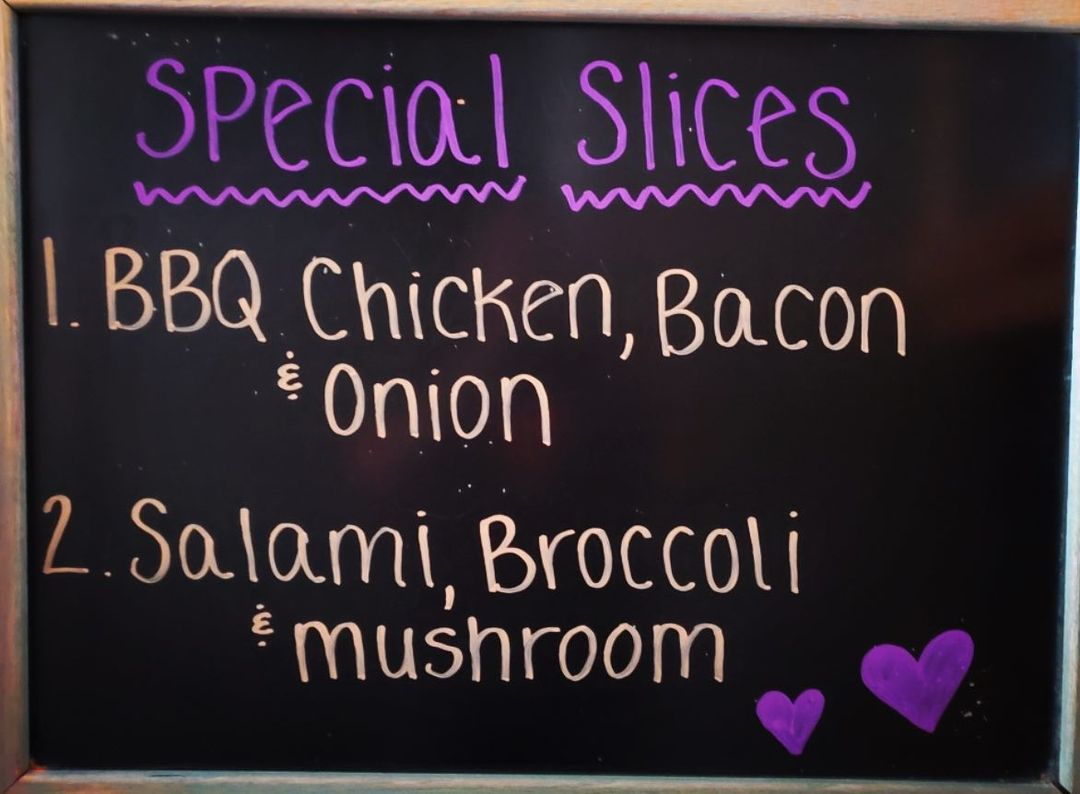 Special Slices
1. BBQ Chicken, Bacon
& Onion
2. Salami, Broccoli
& mushroom